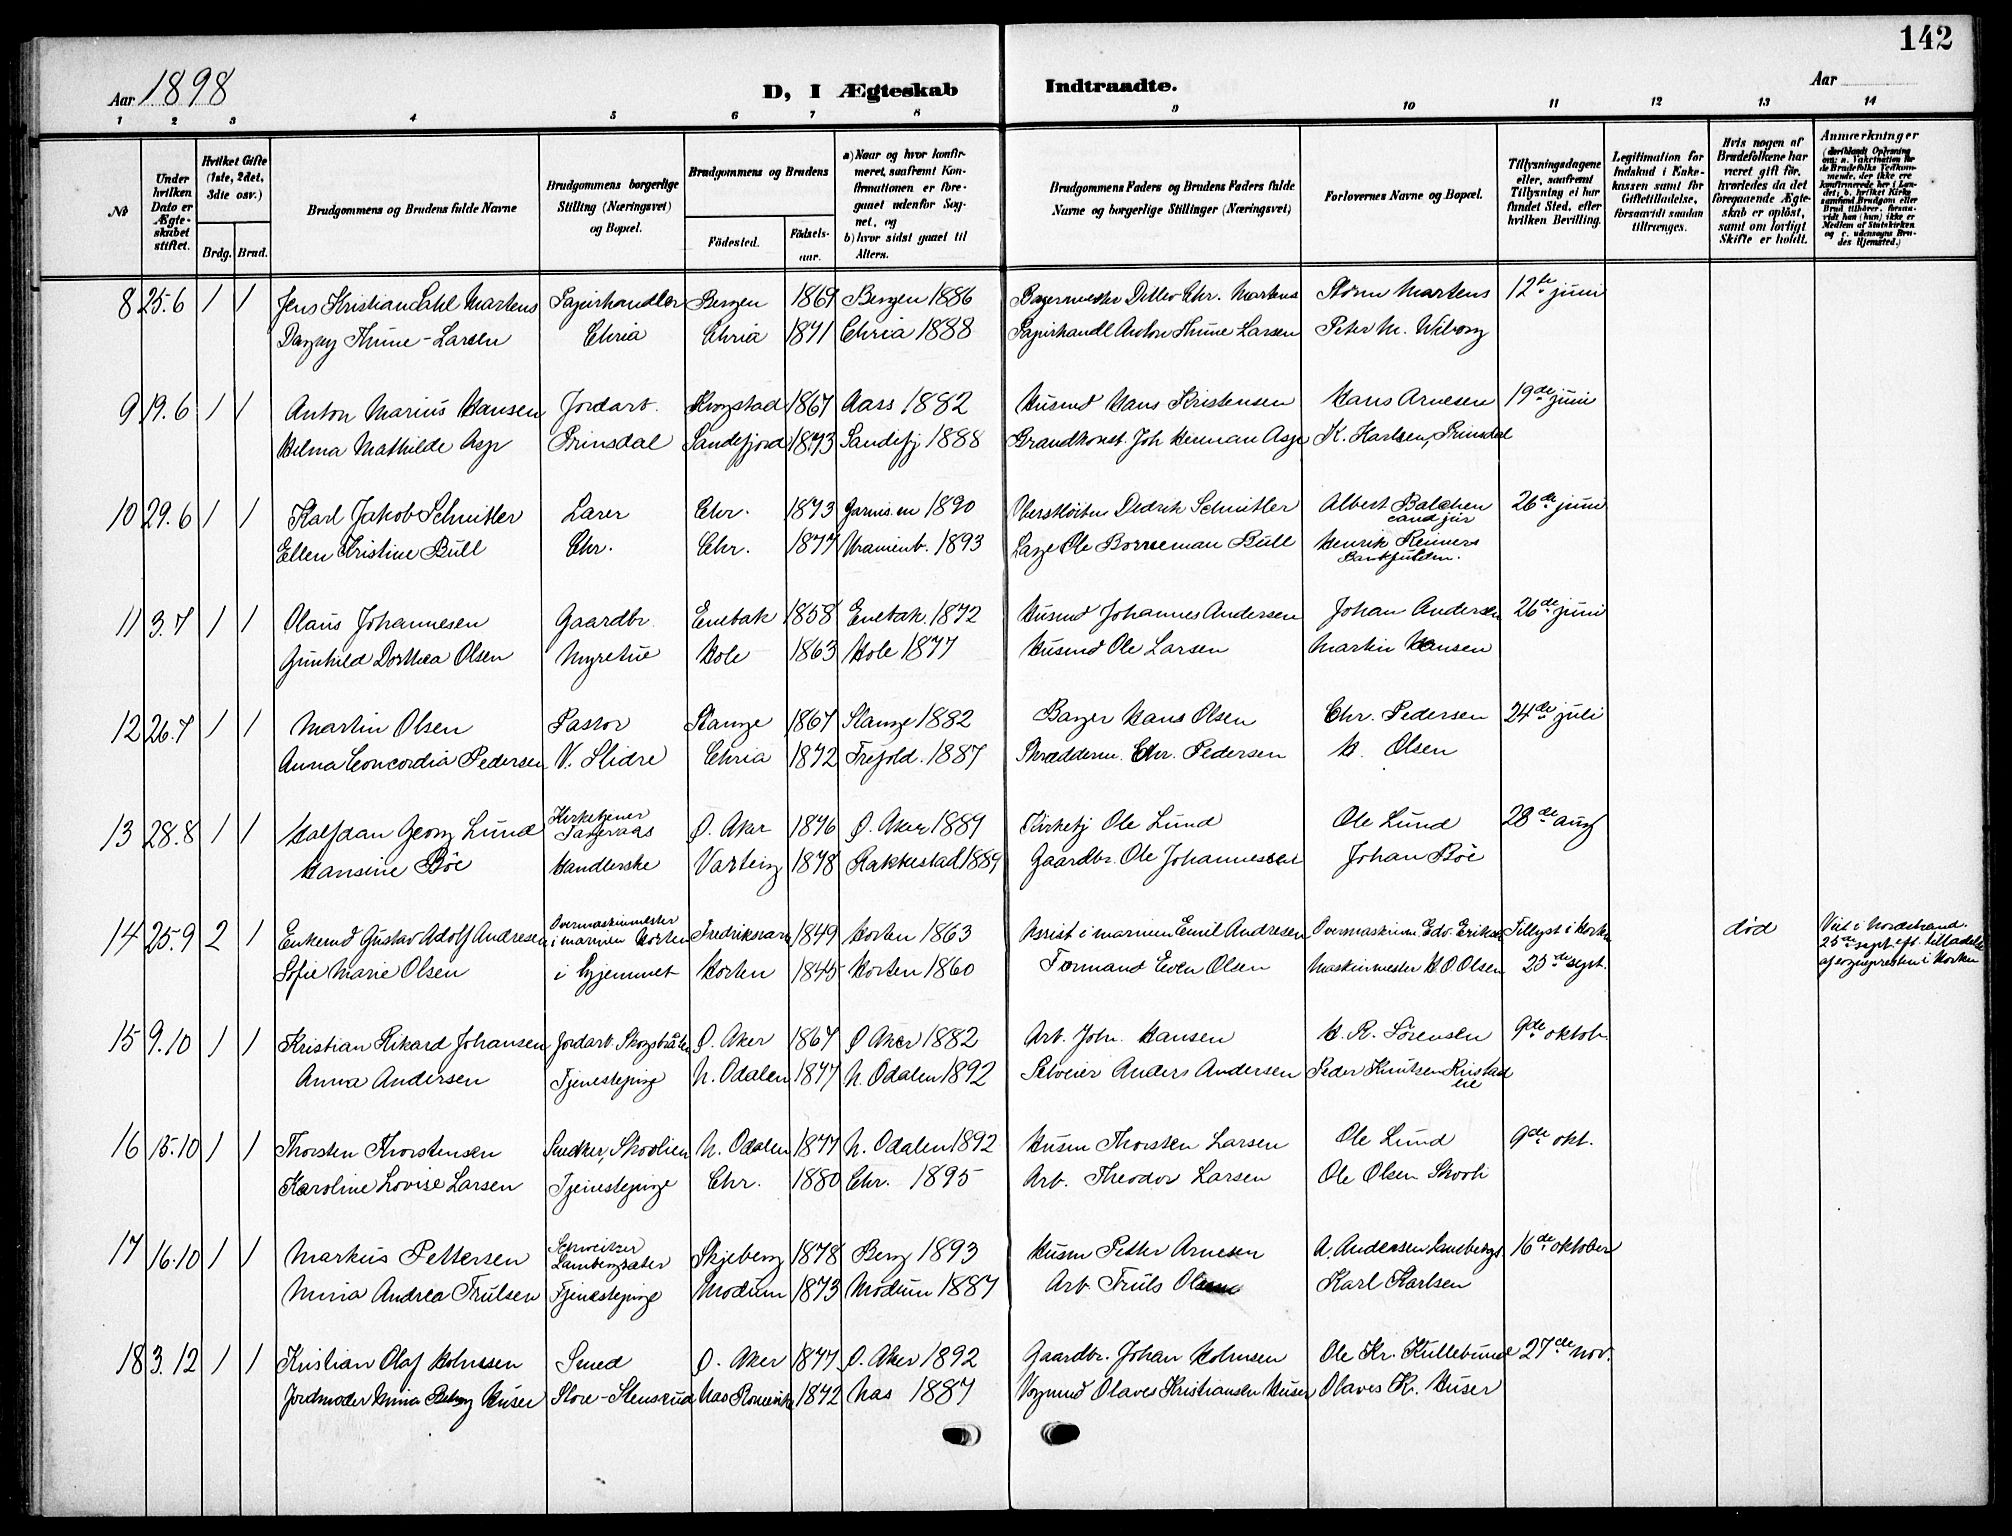 142
Aar 1898
D, I Ægteskab Indtraadte.
Aar
1 2 3 4 5 6 7 8 9 10 11 12 13 14
No
Under hvilken Dato er Ægteskabet stiftet.
Hvilket Gifte (1ste, 2det, 3die osv.)
Brdg. Brud.
Brudgommens og Brudens fulde Navne
Brudgommens borgerlige Stilling (Næringsvei) og Bopæl.
Brudgommens og Brudens
Fødested.
Fødselsaar.
a) Naar og hvor konfirmeret, saafremt Konfirmationen er foregaaet udenfor Sognet, og
b) hvor sidst gaaet til Alters.
Brudgommens Faders og Brudens Faders fulde Navne og borgerlige Stillinger (Næringsvei)
Forlovernes Navne og Bopæl.
Tillysningsdagene eller, saafremt Tillysning ei har fundet Sted, efter hvilken Bevilling.
Legitimation for Indskud i Enkekassen samt for Giftetilladelse, forsaavidt saadan tiltrænges.
Hvis nogen af Brudefolkene har været gift før, hvorledes da det foregaaende Ægteskab er opløst, samt om lovligt Skifte er holdt.
Anmærkninger (deriblandt Oplysning om: a. Vakcination for de Brudefolks Vedkommende, der ikke ere konfirmerede her i Landet; b. hvilket Kirkesamfund Brudgom eller Brud tilhører, forsaavidt han (hun) ikke er Medlem af Statskirken og c. udensogns Brudes Hjemsted.)
8 25.6 1 1 Jens Kristian Martens Papirhandler Bergen 1869 Bergen 1886 Bagermester Detlev Chr. Martens Martens 12te juni
Dagny Thune-Larsen Chria Chria 1871 Chria 1888 Papirhandl Anton Thune Larsen Peter M. Wiborg
9 19.6 1 1 Anton Marius Hansen Jordarb. Krogstad 1867 Aas 1882 Husmd Hans Kristensen Hans Arnesen 19de juni
Hilma Mathilde Asp Prinsdal Sandefjord 1873 Sandefj 1888 Brandkonst. Joh Herman Asp K. Karlsen, Prinsdal
10 29.6 1 1 Karl Jakob Schnitler Lærer Chr. 1873 Garnis.m 1890 Oberstløitn Didrik Schnitler Albert Balchen cand jur 26de juni
Ellen Kristine Bull Chr. Chr. 1877 Uranienb. 1893 Læge Ole Borneman Bull Henrik Reimers Bankfuldm.
11 3.7 1 1 Olaus Johannesen Gaardbr. Enebak 1858 Enebak 1872 Husmd Johannes Andersen Johan Andersen 26de juni
Gunhild Dorthea Olsen Myretue Hole 1863 Hole 1877 Husmd Ole Larsen Martin Hansen
12 26.7 1 1 Martin Olsen Pastor Stange 1867 Stange 1882 Bager Hans Olsen Chr. Pedersen 24de juli
Anna Concordia Pedersen V. Slidre Chria 1872 Trefold. 1887 Skrædderm. Chr. Pedersen H. Olsen
13 28.8 1 1 Halfdan Georg Lund Kirketjener Ø. Aker 1876 Ø. Aker 1889 Kirketj Ole Lund Ole Lund 28de aug
Hansine Bøe Handlerske Varteig 1878 Rakkestad 1889 Gaardbr. Ole Johannessen Johan Bøe
14 25.9 2 1 Enkemd Gustav Adolf Andresen Overmaskinmester i marinen Horten Fredriksværn 1849 Horten 1863 Assist i marinen Emil Andresen Overmaskinm Edv. Eriksen Tillyst i Horten død Viet i Nordstrand 25de sept. eft. tilladelse af sognepresten i Horten
Sofie Marie Olsen i hjemmet Horten 1845 Horten 1860 Tømmand Even Olsen Maskinmester H O Olsen 25de sept.
15 9.10 1 1 Kristian Rikard Johansen Jordarb. Skogsbråten Ø. Aker 1867 Ø Aker 1882 Arb. Johs. Hansen H. R. Sørensen 9de oktob.
Anna Andersen Tjenestepige N. Odalen 1877 N. Odalen 1892 Selveier Anders Andersen Peder Knutsen eie
16 15.10 1 1 Thorsten Thorstensen Snedker, Skovlien N. Odalen 1877 N. Odalen 1892 Husm Thorsten Larsen Ole Lund 9de okt.
Karoline Lovise Larsen Tjenestepige Chr. 1880 Chr. 1895 Arb. Theodor Larsen Ole Olsen Skovli
17 16.10 1 1 Markus Pettersen Schweitser Skjeberg 1878 Berg 1893 Husm Petter Arnesen A. Andersen 16de oktober
Mina Andrea Trulsen Tjenestepige Modum 1873 Modum 1887 Arb. Truls Olsen Karl Karlsen
18 3.12 1 1 Kristian Olaf Holmsen Smed Ø. Aker 1877 Ø. Aker 1892 Gaardbr. Johan Holmsen Ole Kr. Kullebund 27de nov.
Jordmoder Mina Huser Store-Stensrud Næs Romerike 1872 Næs 1887 Vognmd Olaves Kristiansen Huser Olaves K. Huser